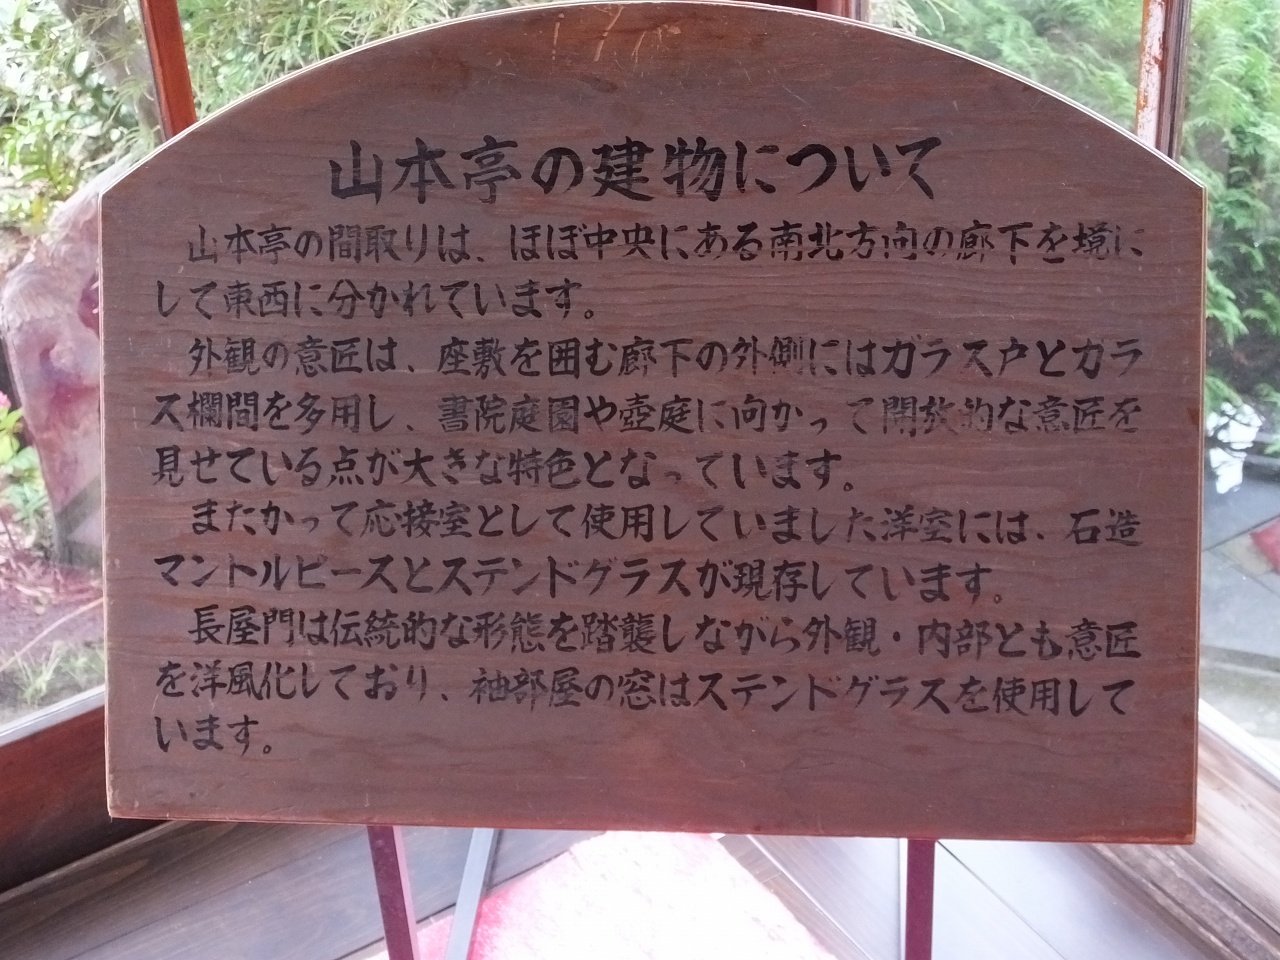 山本亭の建物について
山本亭の間取りは、ほぼ中央にある南北方向の廊下を境に
して東西に分かれています。
外観の意匠は、座敷を囲む廊下の外側にはガラス戸とガラ
ス欄間を多用し、書院庭園や壺庭に向かって開放的な意匠を
見せている点が大きな特色となっています。
またかって応接室として使用していました洋室には、石造
マントルピースとステンドグラスが現存しています。
長屋門は伝統的な形態を踏襲しながら外観・内部とも意匠
を洋風化しており、袖部屋の窓はステンドグラスを使用して
います。